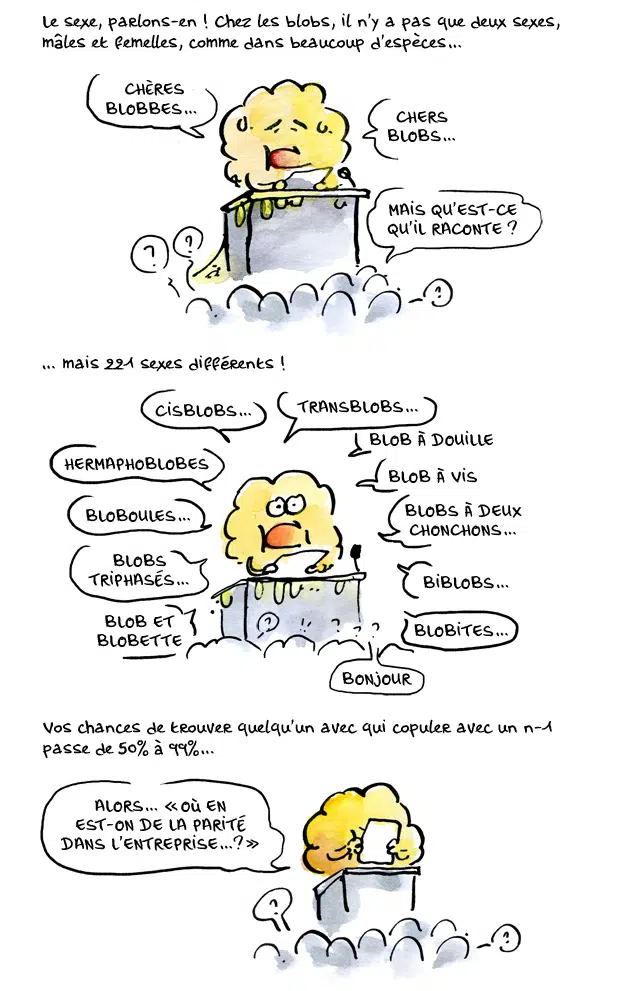 Le sexe, parlons-en ! Chez les blobs, il n'y a pas que deux sexes,
mâles et femelles, comme dans beaucoup d'espèces...
CHÈRES
BLOBBES...
CHERS
BLOBS...
MAIS QU'EST-CE
QU'IL RACONTE ?
?
?
?
... mais 221 sexes différents !
CISBLOBS...
TRANSBLOBS...
BLOB À DOUILLE
HERMAPHOBLOBES
BLOB À VIS
BLOBOULES...
BLOBS À DEUX
CHONCHONS...
BLOBS
TRIPHASÉS...
BIBLOBS...
BLOB ET
BLOBETTE
BLOBITES...
? !! ? ? ?
BONJOUR
Vos chances de trouver quelqu'un avec qui copuler avec un n-1
passe de 50% à 99%...
ALORS... «OÙ EN
EST-ON DE LA PARITÉ
DANS L'ENTREPRISE...?»
?
?